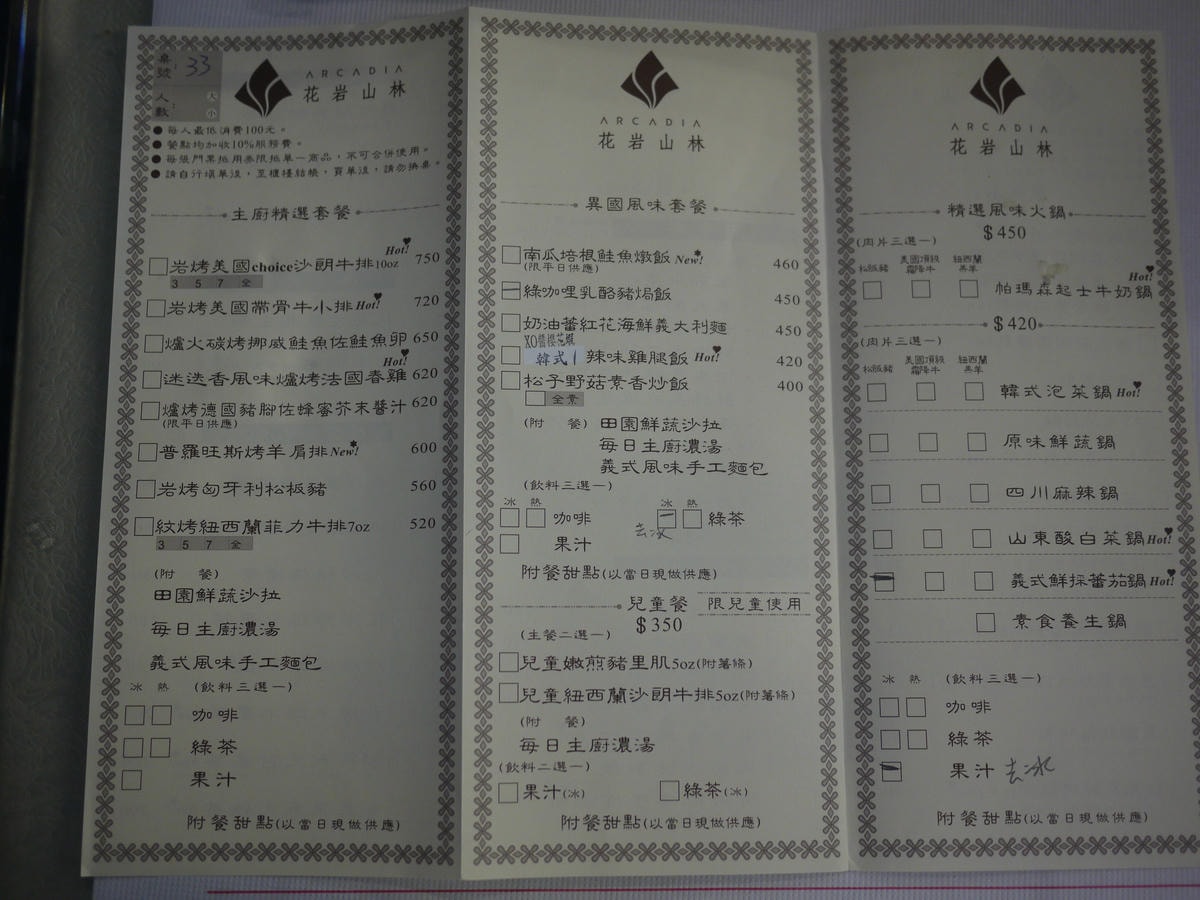 桌號: 33
人數: 大 小
ARCADIA
花岩山林
● 每人最低消費100元。
● 餐點均加收10%服務費。
● 每張門票抵用券限抵單一商品，不可合併使用。
● 請自行填單後，至櫃檯結帳，買單後，請勿換桌。
主廚精選套餐
岩烤美國choice沙朗牛排10oz Hot! 750
3 5 7 全
岩烤美國帶骨牛小排Hot! 720
爐火碳烤挪威鮭魚佐鮭魚卵 650
迷迭香風味爐烤法國春雞 Hot! 620
爐烤德國豬腳佐蜂蜜芥末醬汁 620
(限平日供應)
普羅旺斯烤羊肩排New! 600
岩烤匈牙利松板豬 560
紋烤紐西蘭菲力牛排7oz 520
3 5 7 全
(附 餐)
田園鮮蔬沙拉
每日主廚濃湯
義式風味手工麵包
冰 熱 (飲料三選一)
咖啡
綠茶
果汁
附餐甜點(以當日現做供應)
ARCADIA
花岩山林
異國風味套餐
南瓜培根鮭魚燉飯New! 460
(限平日供應)
綠咖哩乳酪豬焗飯 450
奶油蕃紅花海鮮義大利麵 450
韓式 辣味雞腿飯 Hot! 420
松子野菇素香炒飯 400
全素
(附 餐) 田園鮮蔬沙拉
每日主廚濃湯
義式風味手工麵包
(飲料三選一)
冰 熱 冰 熱
咖啡 綠茶
去冰
果汁
附餐甜點(以當日現做供應)
兒童餐 限兒童使用
$350
(主餐二選一)
兒童嫩煎豬里肌5oz(附薯條)
兒童紐西蘭沙朗牛排5oz(附薯條)
(附 餐)
每日主廚濃湯
(飲料二選一)
果汁(冰) 綠茶(冰)
附餐甜點(以當日現做供應)
ARCADIA
花岩山林
精選風味火鍋
$450
(肉片三選一)
松板豬 美國頂級霜降牛 紐西蘭羔羊
帕瑪森起士牛奶鍋 Hot!
$420
(肉片三選一)
松板豬 美國頂級霜降牛 紐西蘭羔羊
韓式泡菜鍋Hot!
原味鮮蔬鍋
四川麻辣鍋
山東酸白菜鍋Hot!
義式鮮採蕃茄鍋Hot!
素食養生鍋
冰 熱 (飲料三選一)
咖啡
綠茶
果汁 去冰
附餐甜點(以當日現做供應)